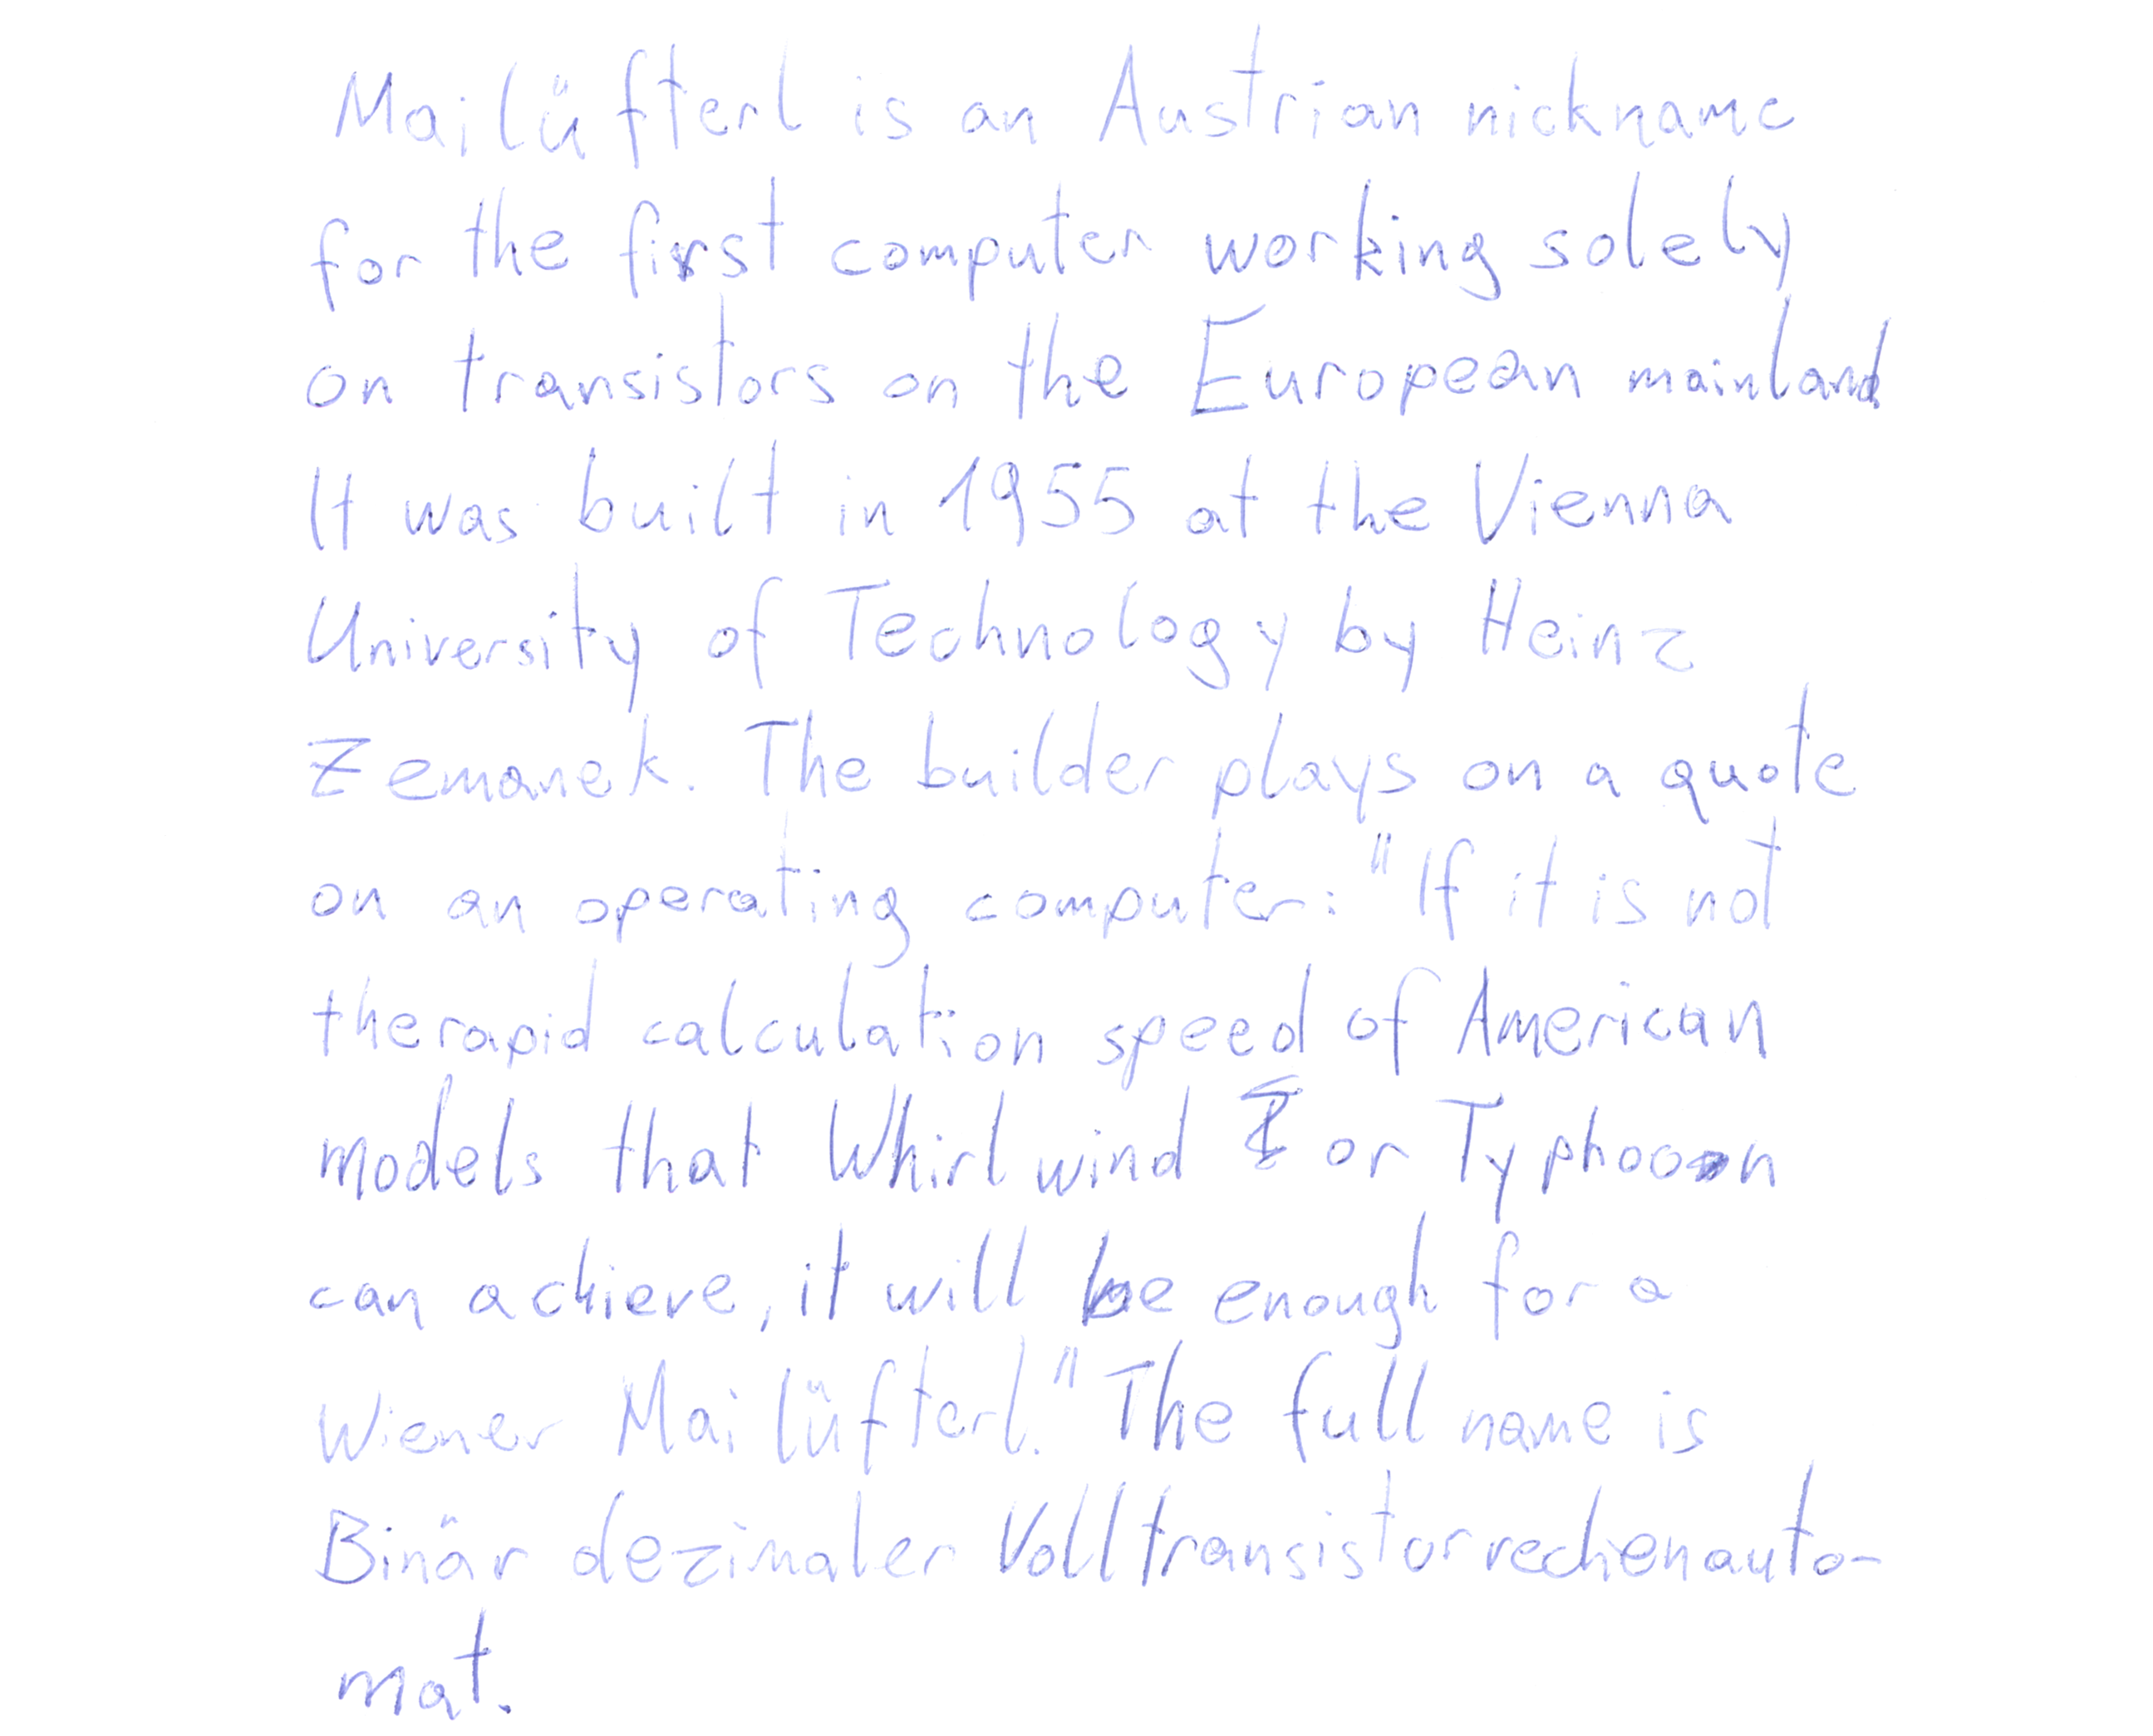 Mailüfterl is an Austrian nickname
for the first computer working solely
on transistors on the European mainland.
It was built in 1955 at the Vienna
University of Technology by Heinz
Zemanek. The builder plays on a quote
on an operating computer: "If it is not
the rapid calculation speed of American
models that Whirlwind I or Typhoon
can achieve, it will be enough for a
Wiener Mailüfterl." The full name is
Binär dezimaler Volltransistorrechenauto-
mat.